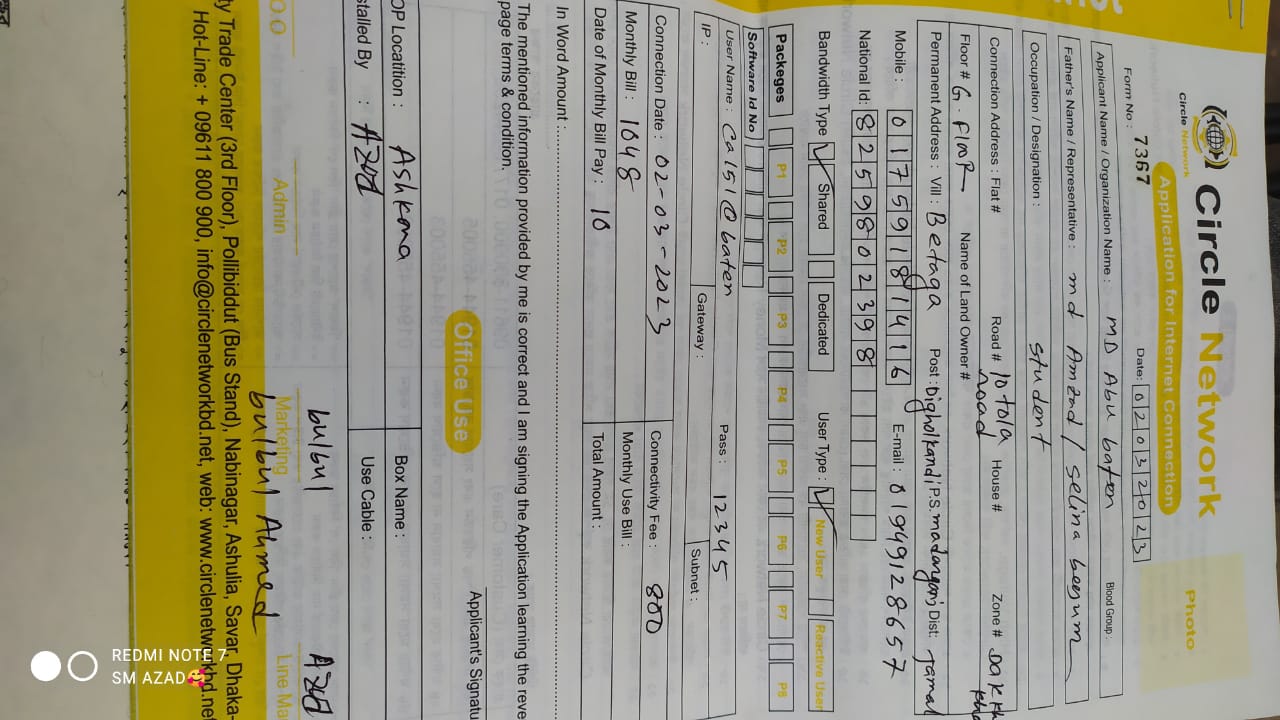 Circle Network
Circle Network
Application for Internet Connection
Photo
Form No : 7367
Date: 02032023
Applicant Name / Organization Name : MD Abu baten Blood Group:
Father's Name / Representative : md Amzad / selina beegum
Occupation / Designation : student
Connection Address : Flat # Road # 10 tola road House # Zone #
Floor # G. FlooR Name of Land Owner #
Permanent Address : Vill : Betaga Post : Digholkandi P.S. Dist: Jamal
Mobile : 01759181416 E-mail : 01949128657
National Id: 8259802398
Bandwidth Type Shared Dedicated User Type : New User Reactive User
Packeges P1 P2 P3 P4 P5 P6 P7 P8
Software Id No
User Name : Cal51@baten Pass : 12345
IP : Gateway : Subnet :
Connection Date : 02-03-2023 Connectivity Fee : 800
Monthly Bill : 1048 Monthly Use Bill :
Date of Monthly Bill Pay : 10 Total Amount :
In Word Amount :
The mentioned information provided by me is correct and I am signing the Application learning the reve
page terms & condition.
Applicant's Signatu
Office Use
OP Locatition : Ashkona Box Name :
stalled By : Azad Use Cable :
bulbul Azad
Admin Marketing Line Ma
bulbul Ahmed
ty Trade Center (3rd Floor), Pollibiddut (Bus Stand), Nabinagar, Ashulia, Savar, Dhaka-
Hot-Line: + 09611 800 900, info@circlenetworkbd.net, web: www.circlenetworkbd.net
REDMI NOTE 7
SM AZAD🥰